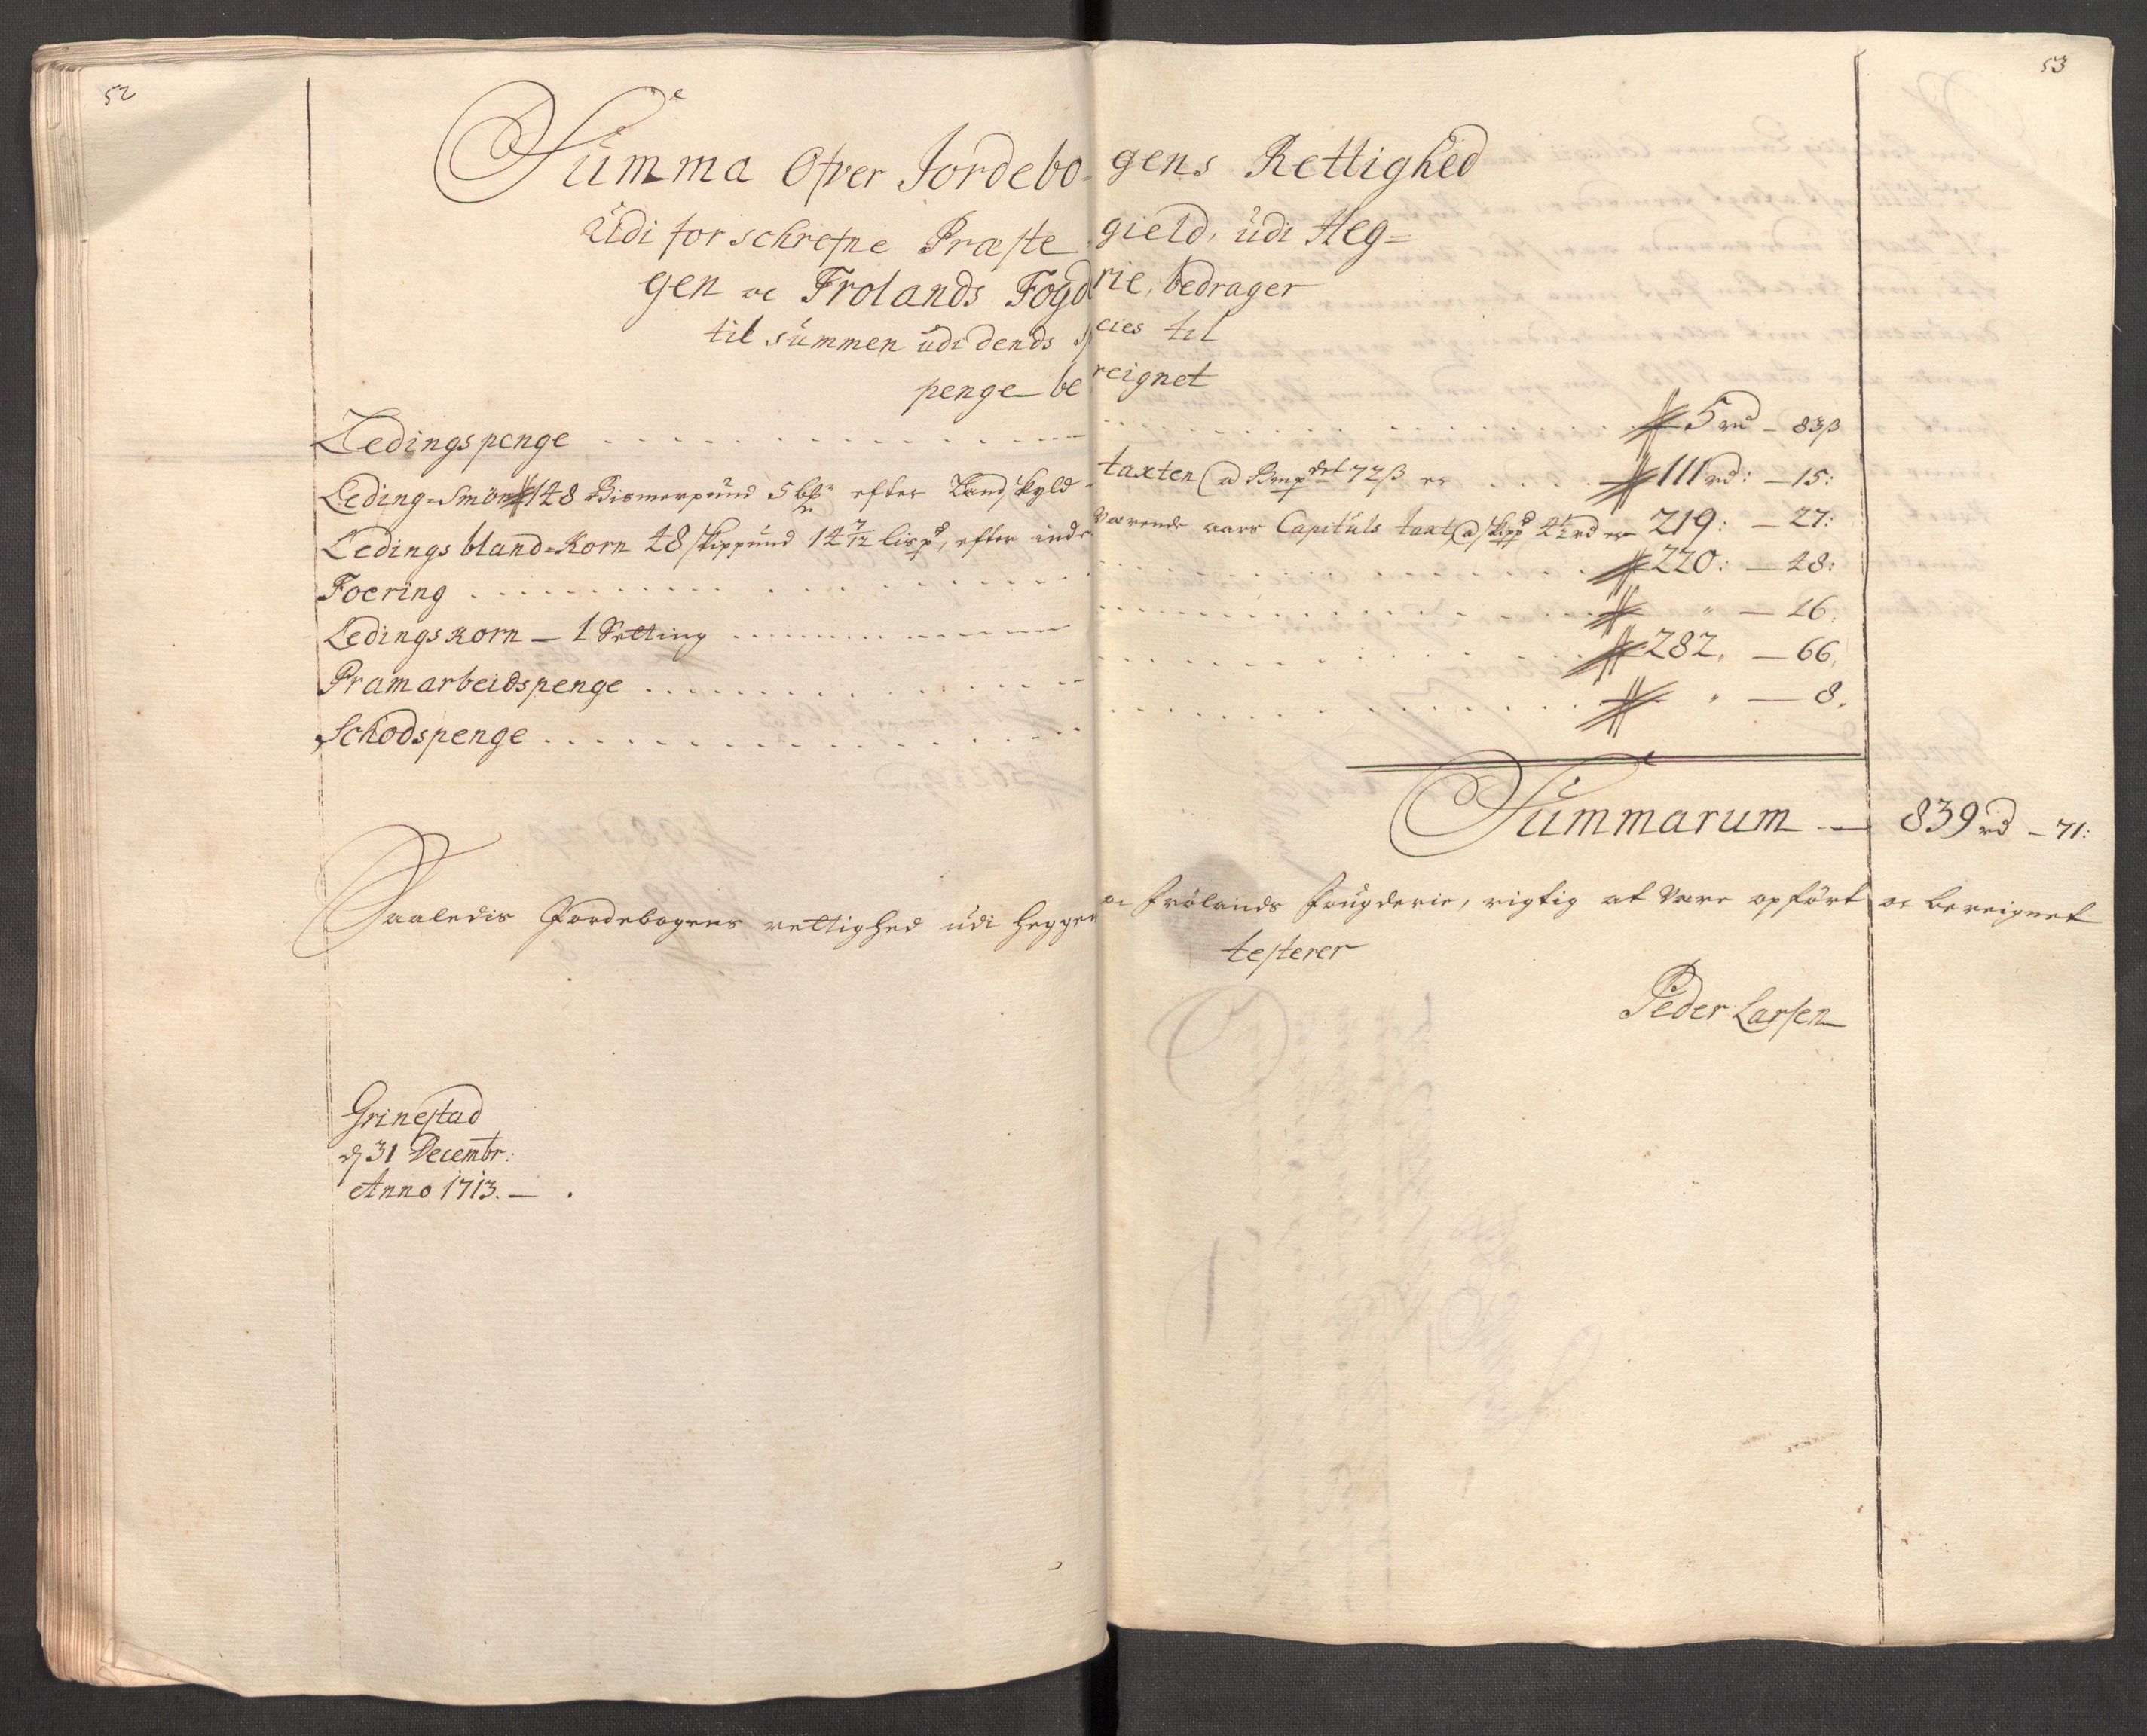 52
53
Summa Ofver Jordebogens Rettighed
üdi forschrefne Præstegield, üdi Heg=
gen oc Frolands Fogdrie, bedrager
til summen üdi dends species til
penge bereignet
Ledingspenge . . . . . . . . . . 5 rd – 83 ß
Leding-Smör 148 Bismerpund 5 efter Landskyld-taxten @ Bmp det 72 ß er . . . . 111 rd: – 15:
Ledings bland-Korn 48 skippund 14 7/12 lispd, efter inde værende aars Capituls taxt @ skippd 4 1/2 rd er 219: – 27:
Foering . . . . . . . . . . 220: – 48:
Ledingskorn – 1 Setting . . . . . . . . . . " – 16.
Pramarbeidspenge . . . . . . . . . . 282. – 66.
Schodspenge . . . . . . . . . . " – 8.
Summarum – 839 rd – 71:
Saaledis Jordebogens rettighed udi Heggen oc Frölands Fougderie, rigtig at være opfört oc bereignet
testerer
Peder Larsen
Grinestad
d 31 Decembr:
Anno 1713. –